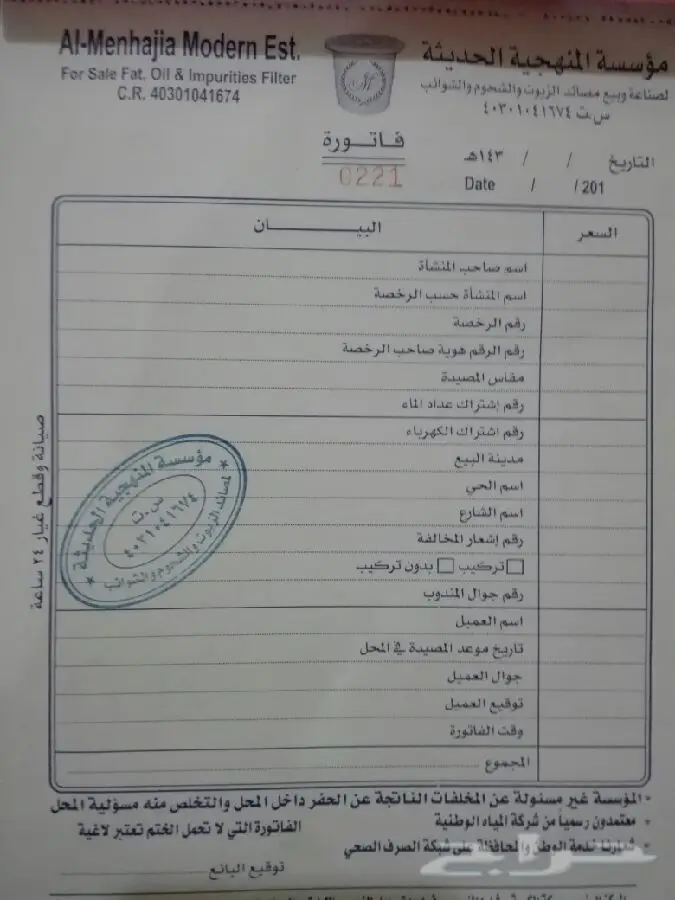 Al-Menhajia Modern Est.
For Sale Fat, Oil & Impurities Filter
C.R. 40301041674
مؤسسة المنهجية الحديثة
لصناعة وبيع مصائد الزيوت والشحوم والشوائب
س.ت ٤٠٣٠١٠٤١٦٧٤
فاتـــورة
0221
التاريخ / / ١٤٣هـ
Date / / 201
السعر
البيـــــــان
اسم صاحب المنشأة
اسم المنشأة حسب الرخصة
رقم الرخصة
رقم الرقم هوية صاحب الرخصة
مقاس المصيدة
رقم إشتراك عداد الماء
رقم اشتراك الكهرباء
مدينة البيع
اسم الحي
اسم الشارع
رقم إشعار المخالفة
تركيب بدون تركيب
رقم جوال المندوب
اسم العميل
تاريخ موعد المصيدة في المحل
جوال العميل
توقيع العميل
وقت الفاتورة
المجموع
صيانة وقطع غيار ٢٤ ساعة
مؤسسة المنهجية الحديثة
س.ت
٤٠٣١٠٤١٦٧٤
لمصائد الزيوت والشحوم والشوائب
- المؤسسة غير مسئولة عن المخلفات الناتجة عن الحفر داخل المحل والتخلص منه مسؤلية المحل
- معتمدون رسمياً من شركة المياه الوطنية
الفاتورة التي لا تحمل الختم تعتبر لاغية
- شعارنا خدمة الوطن والمحافظة على شبكة الصرف الصحي
توقيع البائع
حراج